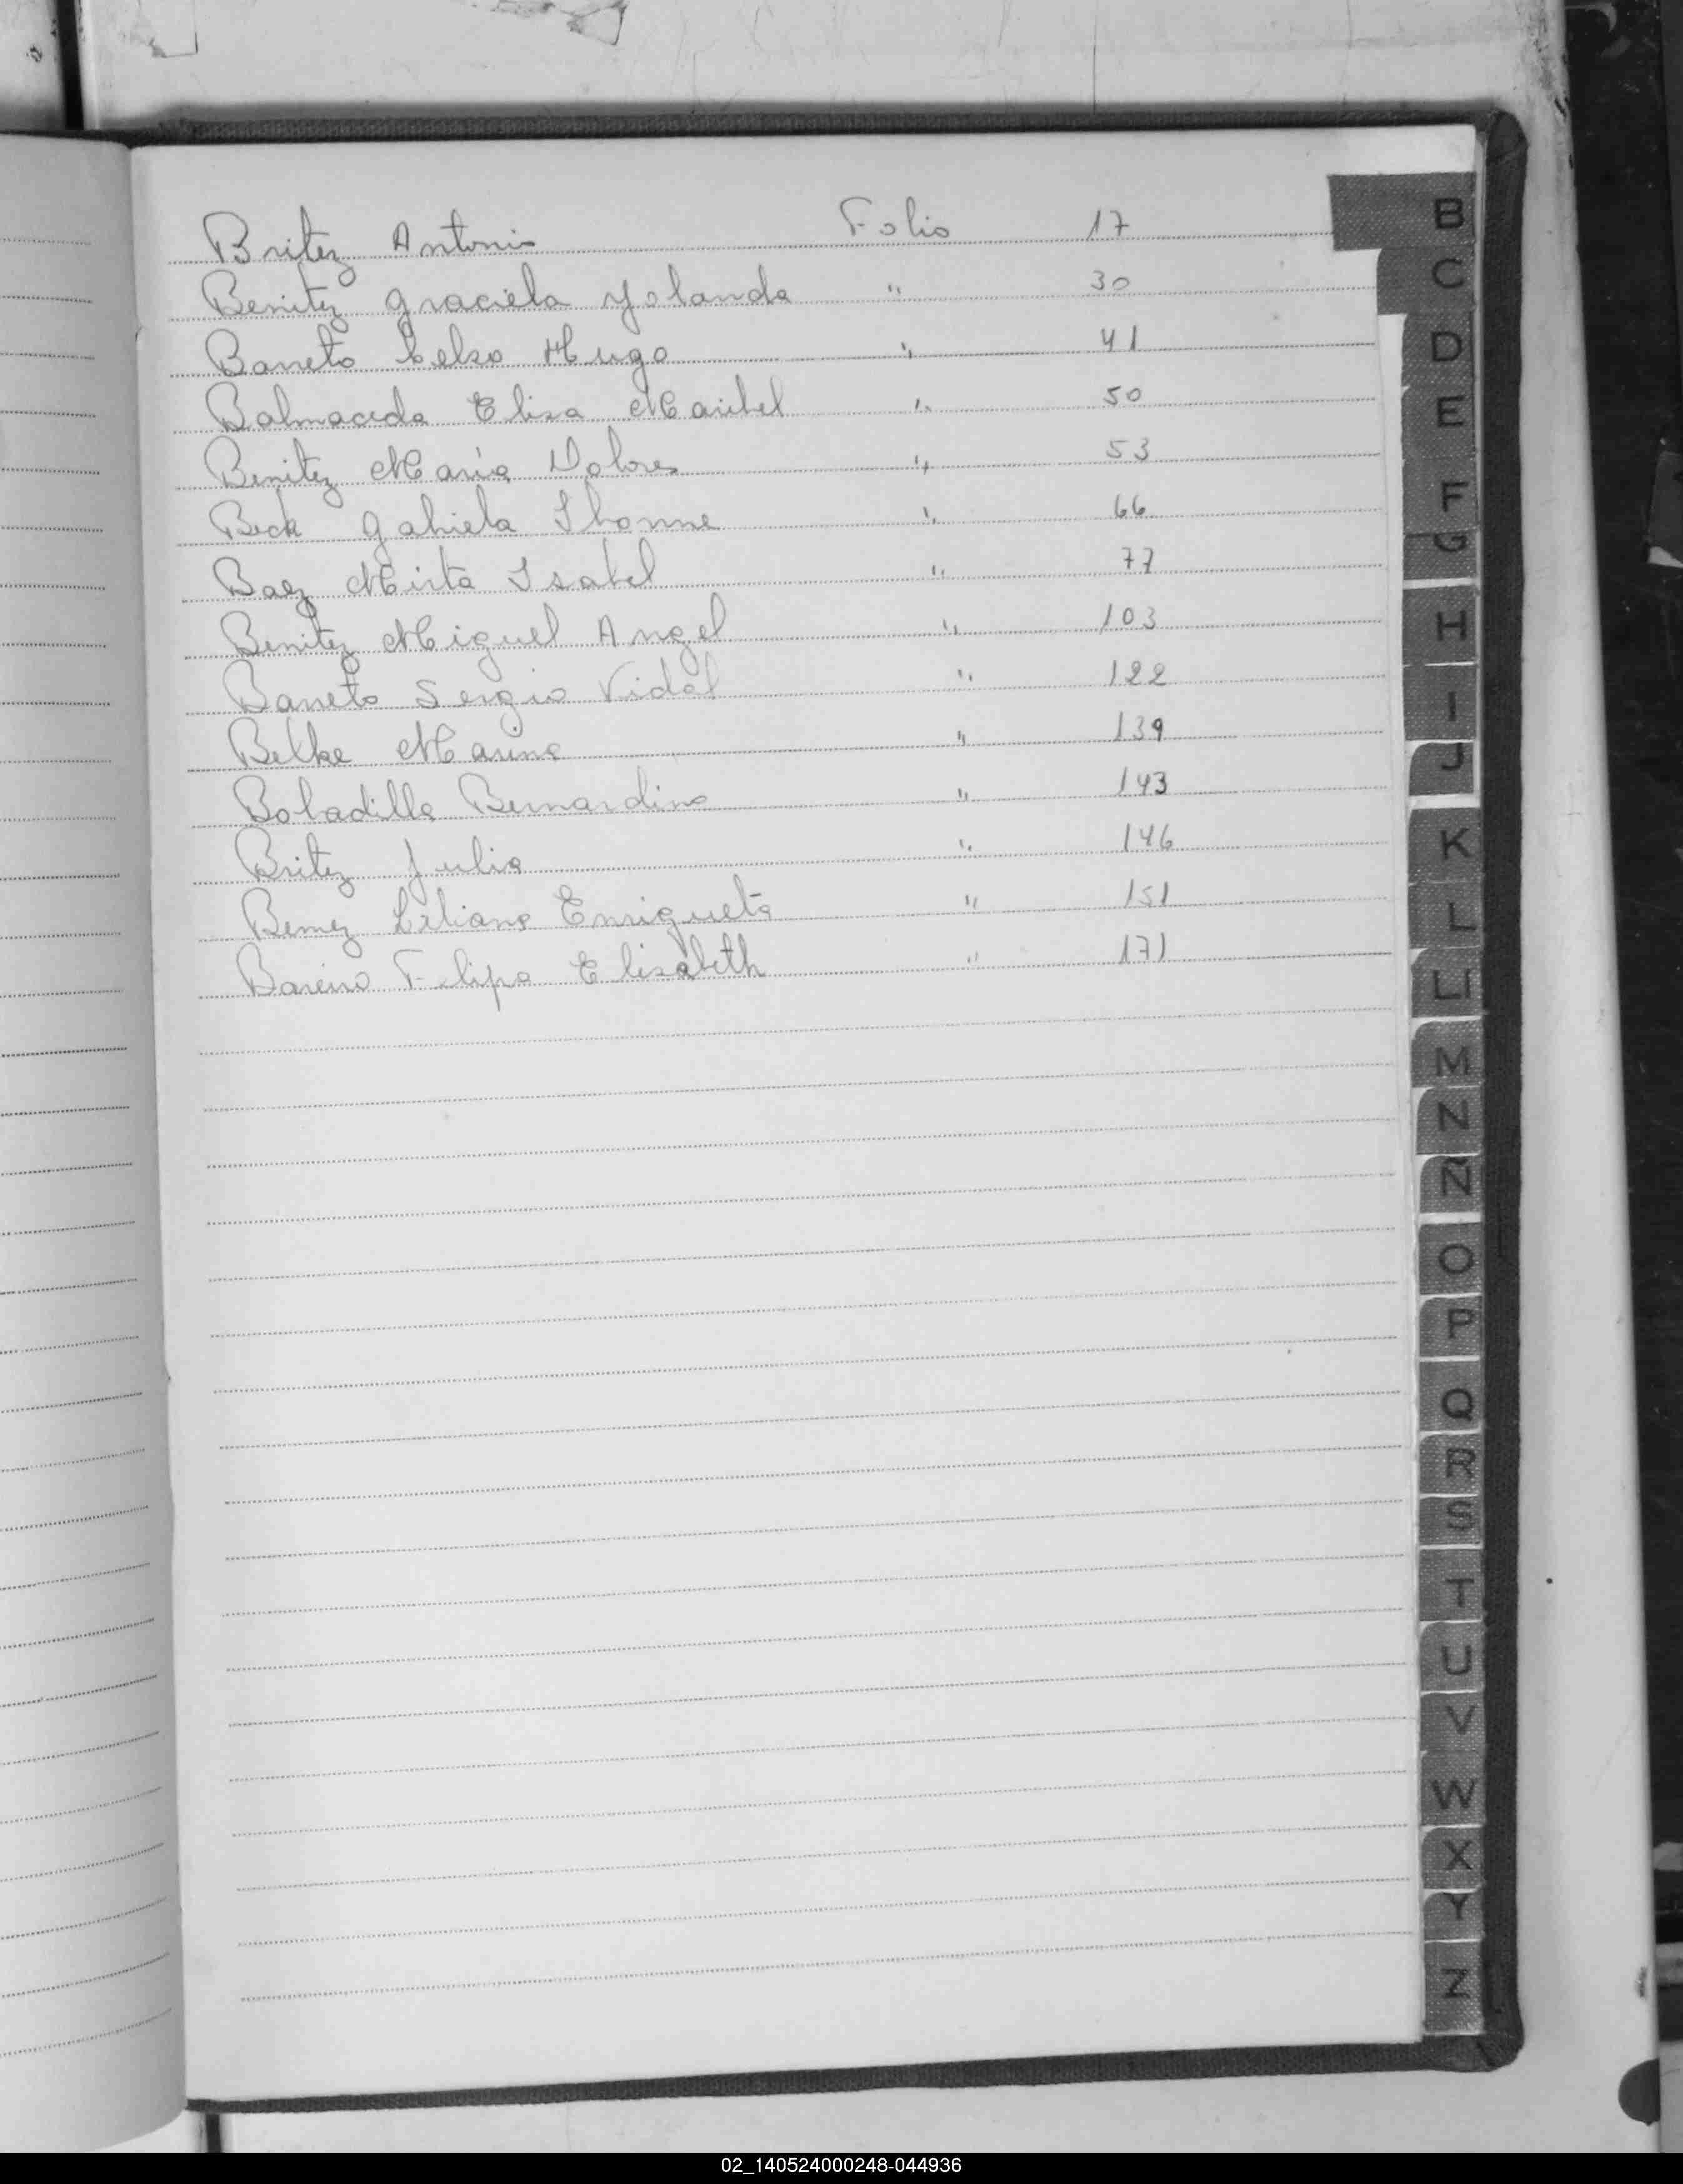 Britez Antonio Folio 17
Benitez Graciela Yolanda " 30
Barreto Celso Hugo " 41
Balmaceda Elisa Maribel " 50
Benitez María Dolores " 53
Beck Gabriela Ibonne " 66
Baez Mirta Isabel " 77
Benitez Miguel Angel " 103
Barreto Sergio Vidal " 122
Belke Marina " 139
Bobadilla Bernardino " 143
Britez Julia " 146
Liliana Enriqueta " 151
Bareiro Felipa Elisabeth " 171
B
C
D
E
F
G
H
I
J
K
L
LL
M
N
Ñ
O
P
Q
R
S
T
U
V
W
X
Y
Z
02_140524000248-044936